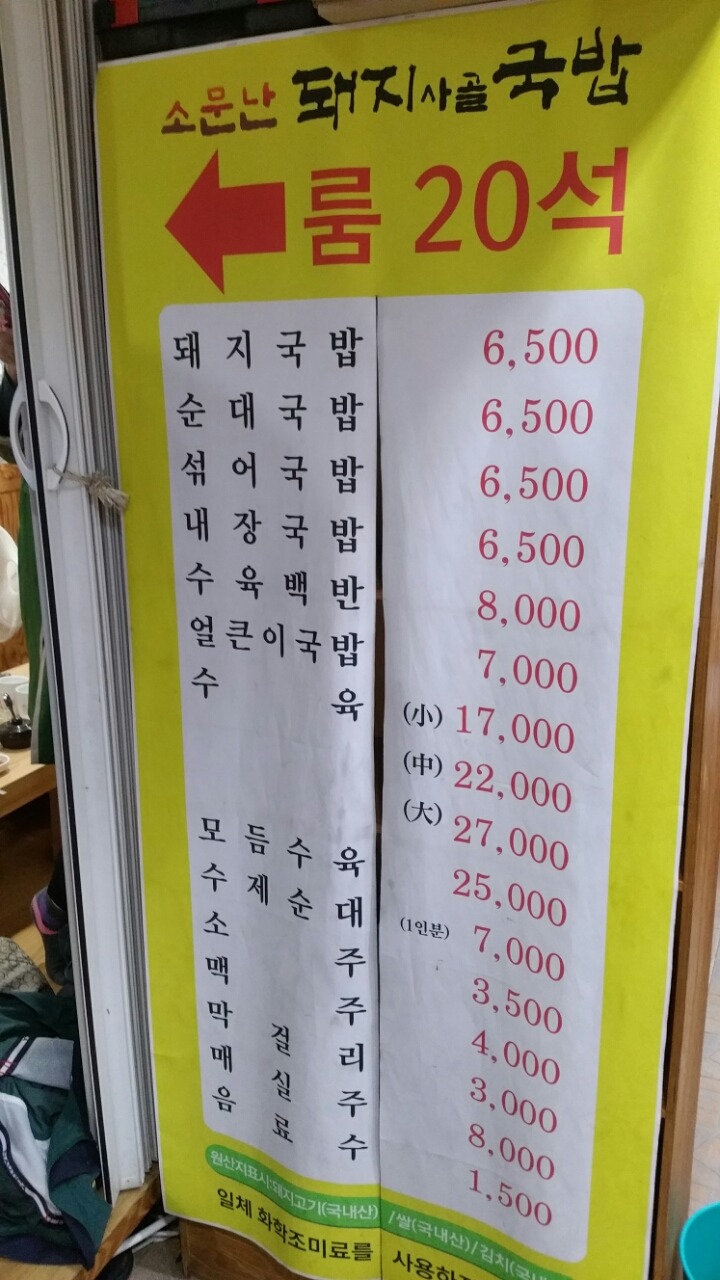 소문난 돼지사골국밥
룸 20석
돼지국밥 6,500
순대국밥 6,500
섞어국밥 6,500
내장국밥 6,500
수육백반 8,000
얼큰이국밥 7,000
수육 (小) 17,000
(中) 22,000
(大) 27,000
모듬수육 25,000
수제순대 (1인분) 7,000
소주 3,500
맥주 4,000
막걸리 3,000
매실주 8,000
음료수 1,500
원산지표시:돼지고기(국내산)/쌀(국내산)/김치(국내
일체 화학조미료를 사용하